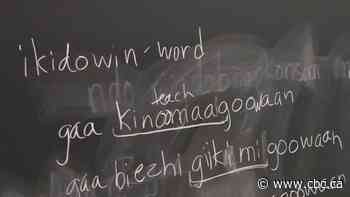 ikidowin-word
teach
gaa kinoomaagoowaan
gaa biezhi giikimigoowaan
© www.cbc.ca